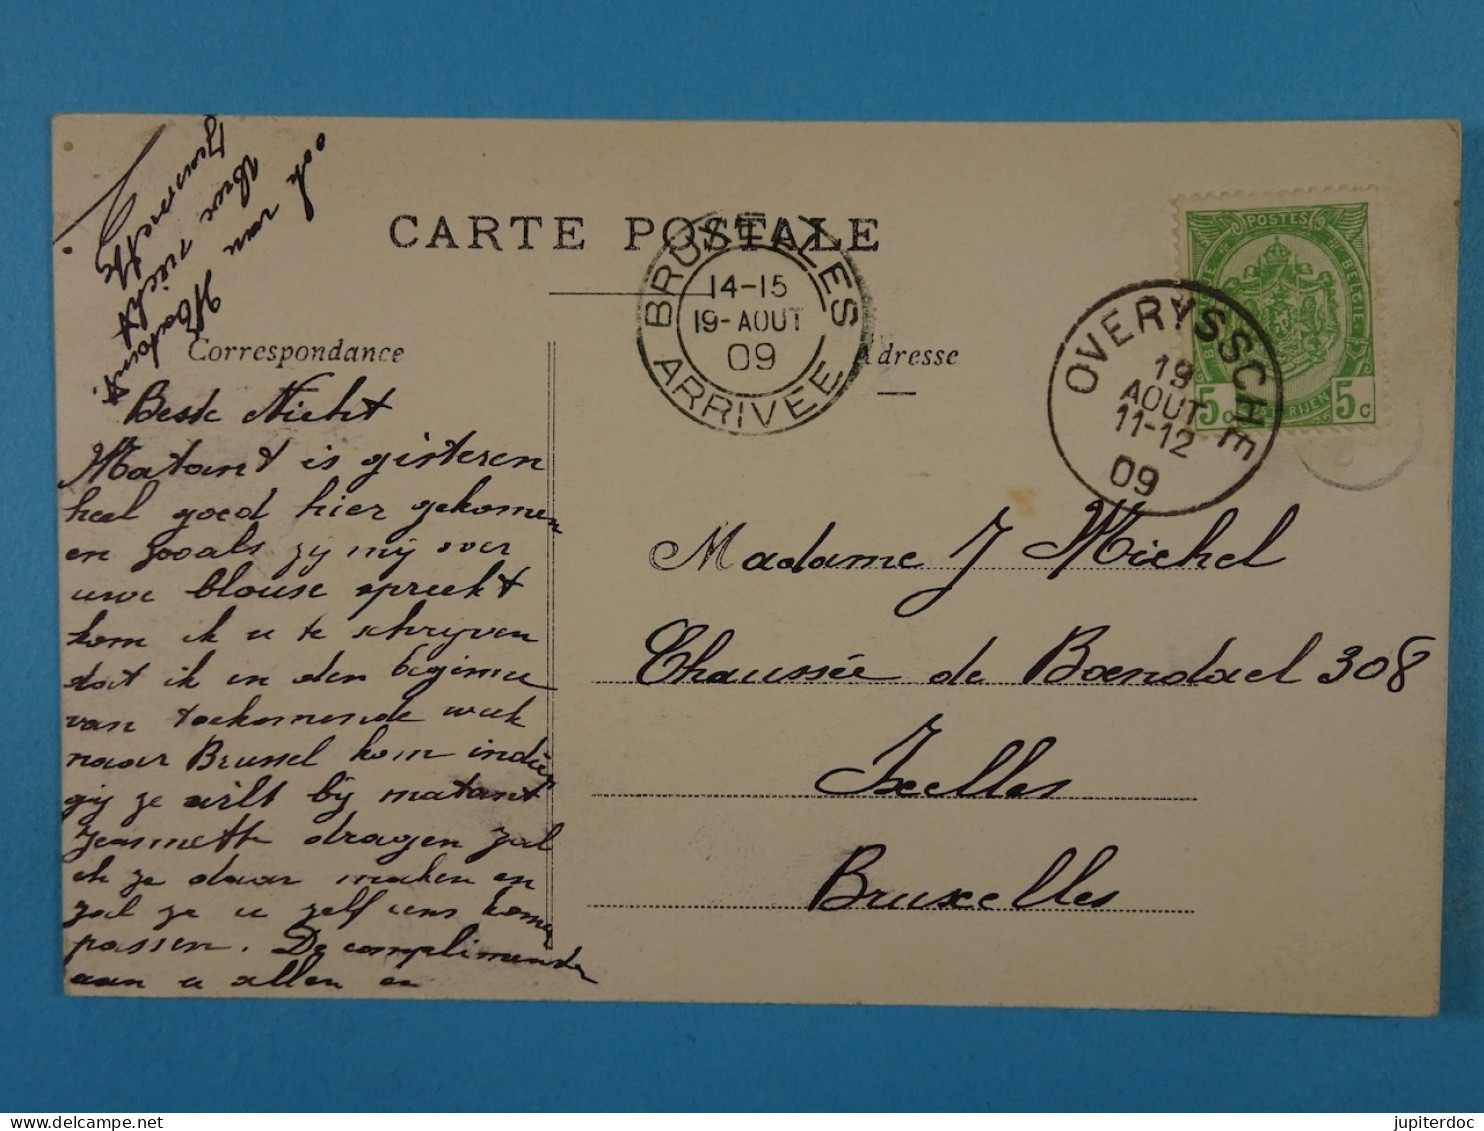 CARTE POSTALE
Correspondance
Adresse
BRUXELLES
14-15
19-AOUT
09
ARRIVEE
POSTES
5c
5c
OVERYSSCHE
19
AOUT
11-12
09
Beste Nicht
Matant is gisteren
heel goed hier gekomen
en zooals zij mij over
uwe blouse spreekt
kom ik u te schrijven
dat ik in den beginne
van toekomende week
naar Brussel kom indien
gij ze wilt bij matant
Jeannette dragen zal
ik ze daar maken en
zal ze u zelf eens komen
passen. De complimenten
aan u allen en
ook van Matant.
Uwe nicht
Jeannette
Madame J Michel
Chaussée de Boendael 308
Ixelles
Bruxelles
jupiterdoc